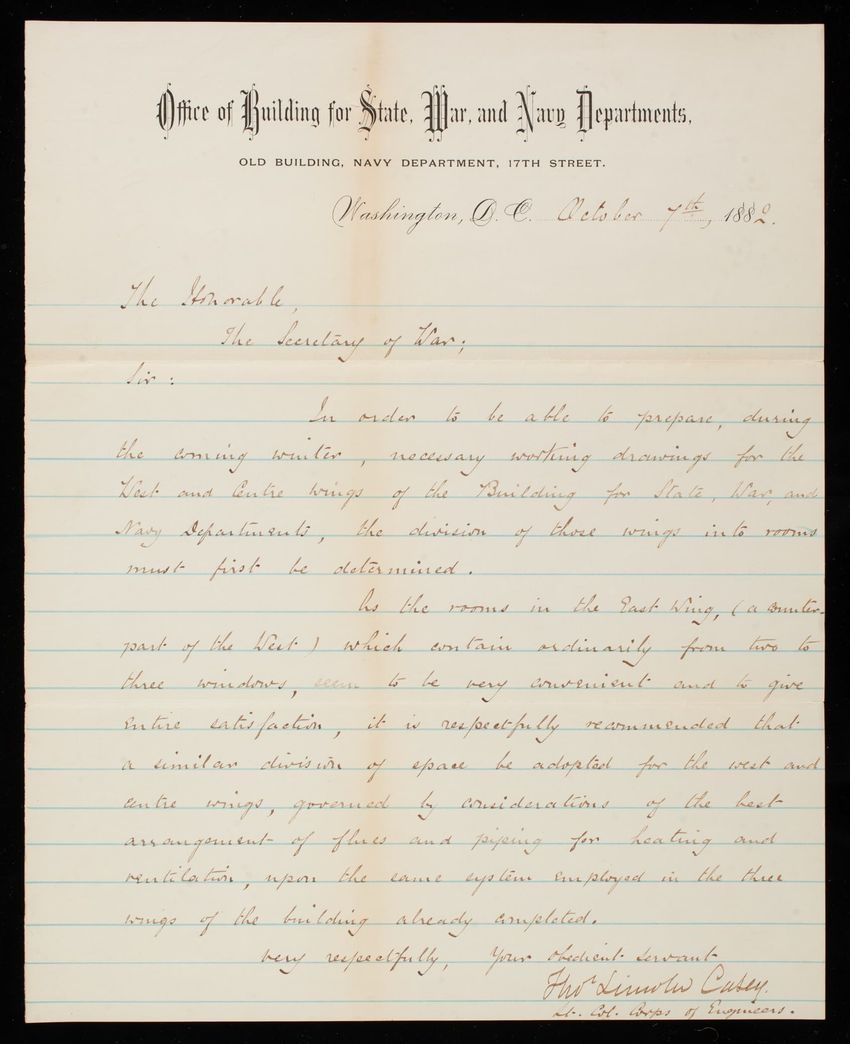 Office of Building for State, War, and Navy Departments,
OLD BUILDING, NAVY DEPARTMENT, 17TH STREET.
Washington, D. C. October 7th, 1882.
The Honorable,
The Secretary of War;
Sir:
In order to be able to prepare, during
the coming winter, necessary working drawings for the
West and Centre wings of the Building for State, War, and
Navy Departments, the division of those wings into rooms
must first be determined.
As the rooms in the East Wing, (a counter-
part of the West) which contain ordinarily from two to
three windows, seem to be very convenient and to give
entire satisfaction, it is respectfully recommended that
a similar division of space be adopted for the west and
centre wings, governed by considerations of the best
arrangement of flues and piping for heating and
ventilation, upon the same system employed in the three
wings of the building already completed.
Very respectfully, Your obedient servant
Thos Lincoln Casey.
Lt. Col. Corps of Engineers.